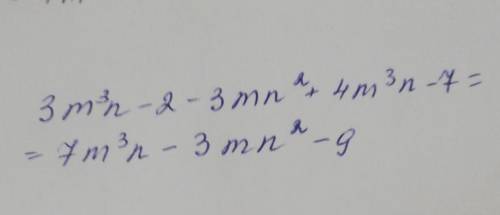 3m³n - 2 - 3mn² + 4m³n - 7 =
= 7m³n - 3mn² - 9